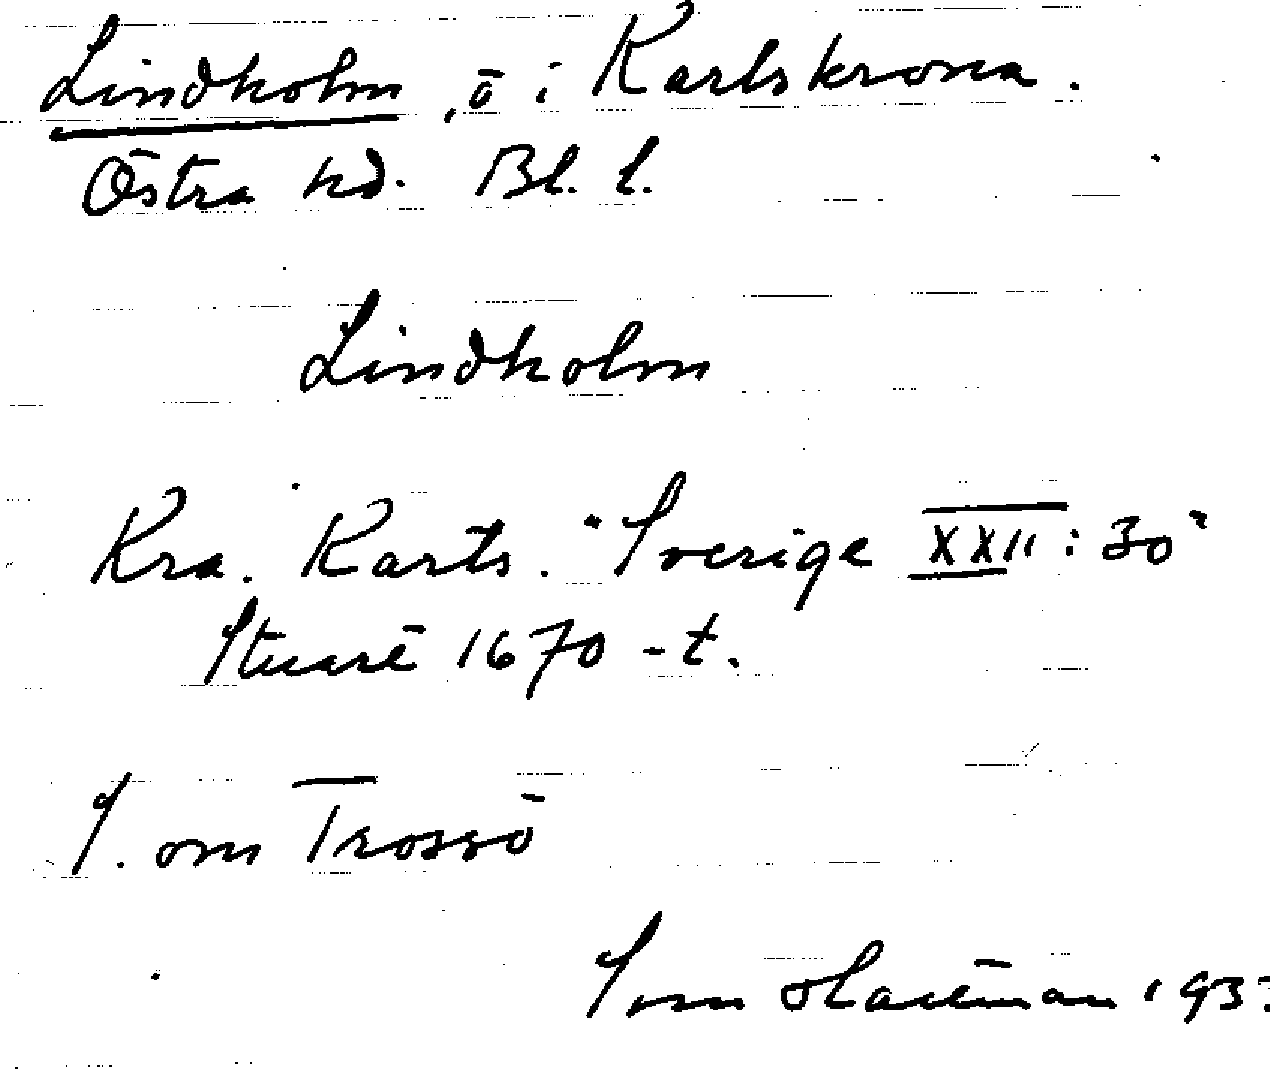 Lindholm, ö i Karlskrona.
Östra hd. Bl. l.
Lindholm
Kra. Karts. "Sverige XXII:30"
Stuart 1670-t.
S. om Trossö
Sven 193